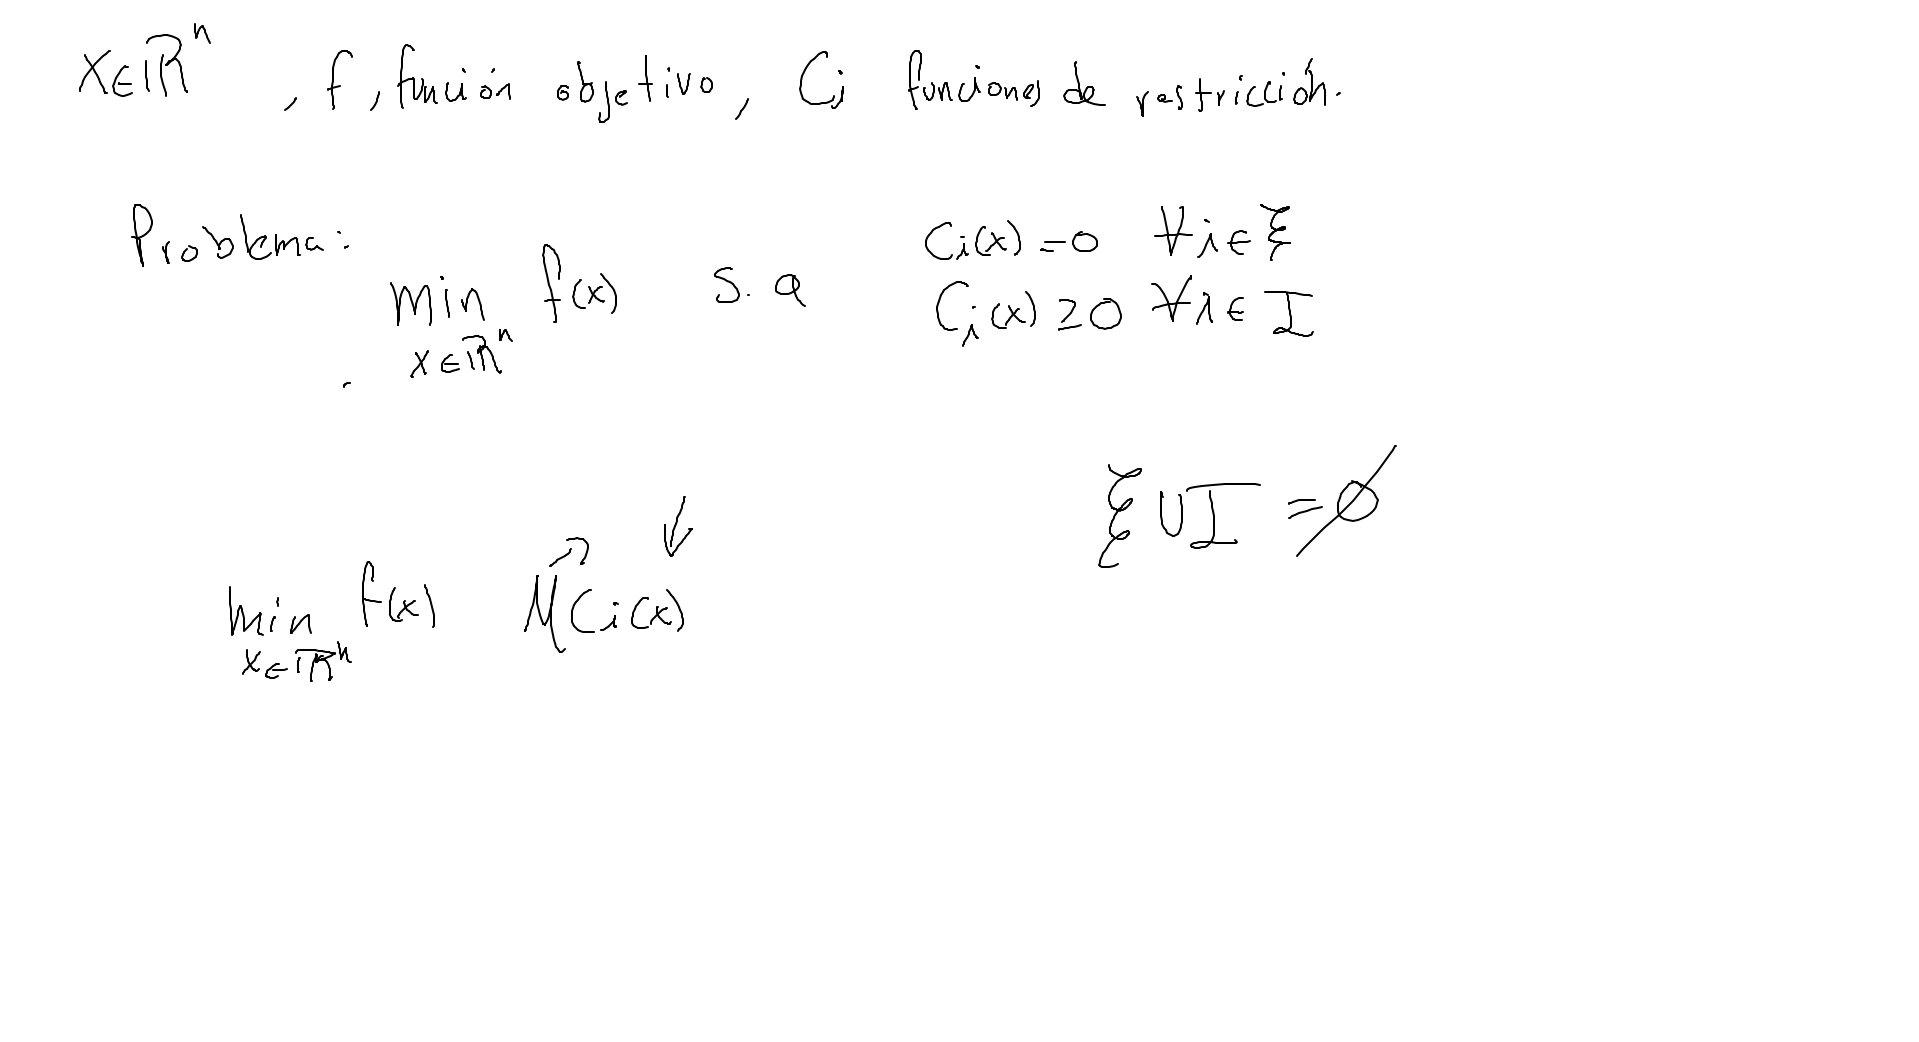 x∈ℝⁿ , f, función objetivo, Ci funciones de restricción.
Problema:
min f(x) s.a
x∈ℝⁿ
Ci(x) = 0 ∀i∈ξ
Ci(x) ≥ 0 ∀i∈I
ξ ∪ I = ∅
min f(x) M Ci(x)
x∈ℝⁿ